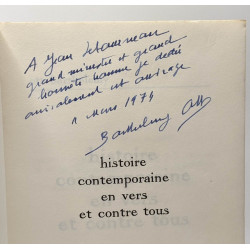 A Jean
grand ministre et grand
honnête homme je dédie
amicalement cet ouvrage
1 Mars 1974
Barthélemy
histoire
contemporaine
en vers
et contre tous